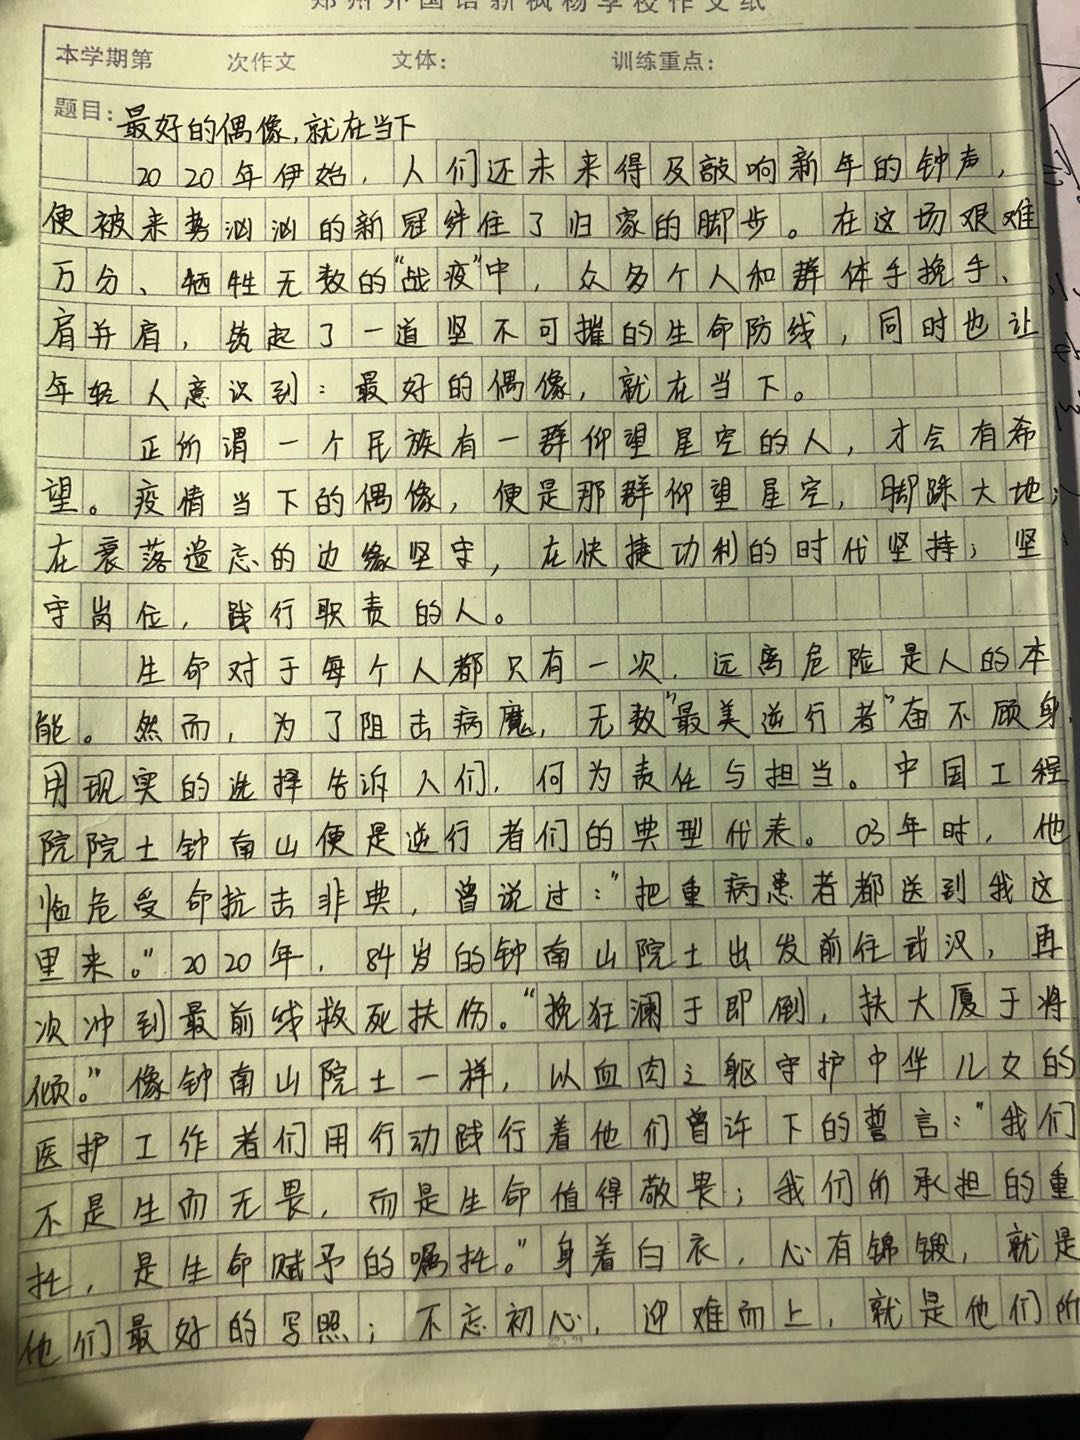 郑州外国语新枫杨学校作文纸
本学期第 次作文 文体： 训练重点：
题目：最好的偶像，就在当下
2020年伊始，人们还未来得及敲响新年的钟声，
便被来势汹汹的新冠绊住了归家的脚步。在这场艰难
万分、牺牲无数的“战疫”中，众多个人和群体手挽手、
肩并肩，筑起了一道坚不可摧的生命防线，同时也让
年轻人意识到：最好的偶像，就在当下。
正所谓一个民族有一群仰望星空的人，才会有希
望。疫情当下的偶像，便是那群仰望星空，脚踩大地；
在衰落遗忘的边缘坚守，在快捷功利的时代坚持；坚
守岗位，践行职责的人。
生命对于每个人都只有一次，远离危险是人的本
能。然而，为了阻击病魔，无数“最美逆行者”奋不顾身，
用现实的选择告诉人们，何为责任与担当。中国工程
院院士钟南山便是逆行者们的典型代表。03年时，他
临危受命抗击非典，曾说过：“把重病患者都送到我这
里来。”2020年，84岁的钟南山院士出发前往武汉，再
次冲到最前线救死扶伤。“挽狂澜于即倒，扶大厦于将
倾。”像钟南山院士一样，以血肉之躯守护中华儿女的
医护工作者们用行动践行着他们曾许下的誓言：“我们
不是生而无畏，而是生命值得敬畏；我们所承担的重
托，是生命赋予的嘱托。”身着白衣，心有锦缎，就是
他们最好的写照；不忘初心，迎难而上，就是他们所